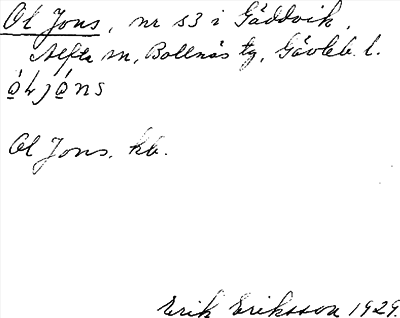 Ol Jons, nr 53 i Gäddvik,
Alfta sn, Bollnäs tg, Gävleb. l.
ó̱Ljó̱ns
Ol Jons. kb.
Erik Eriksson 1929.